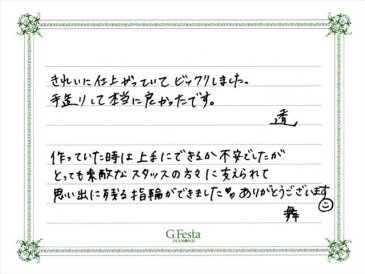 きれいに仕上がっていてビックリしました。
手造りして本当に良かったです。
透
作っていた時は上手にできるか不安でしたが
とっても素敵なスタッフの方々に支えられて
思い出に残る指輪ができました♡。ありがとうございます
舞
G.Festa
DIAMOND